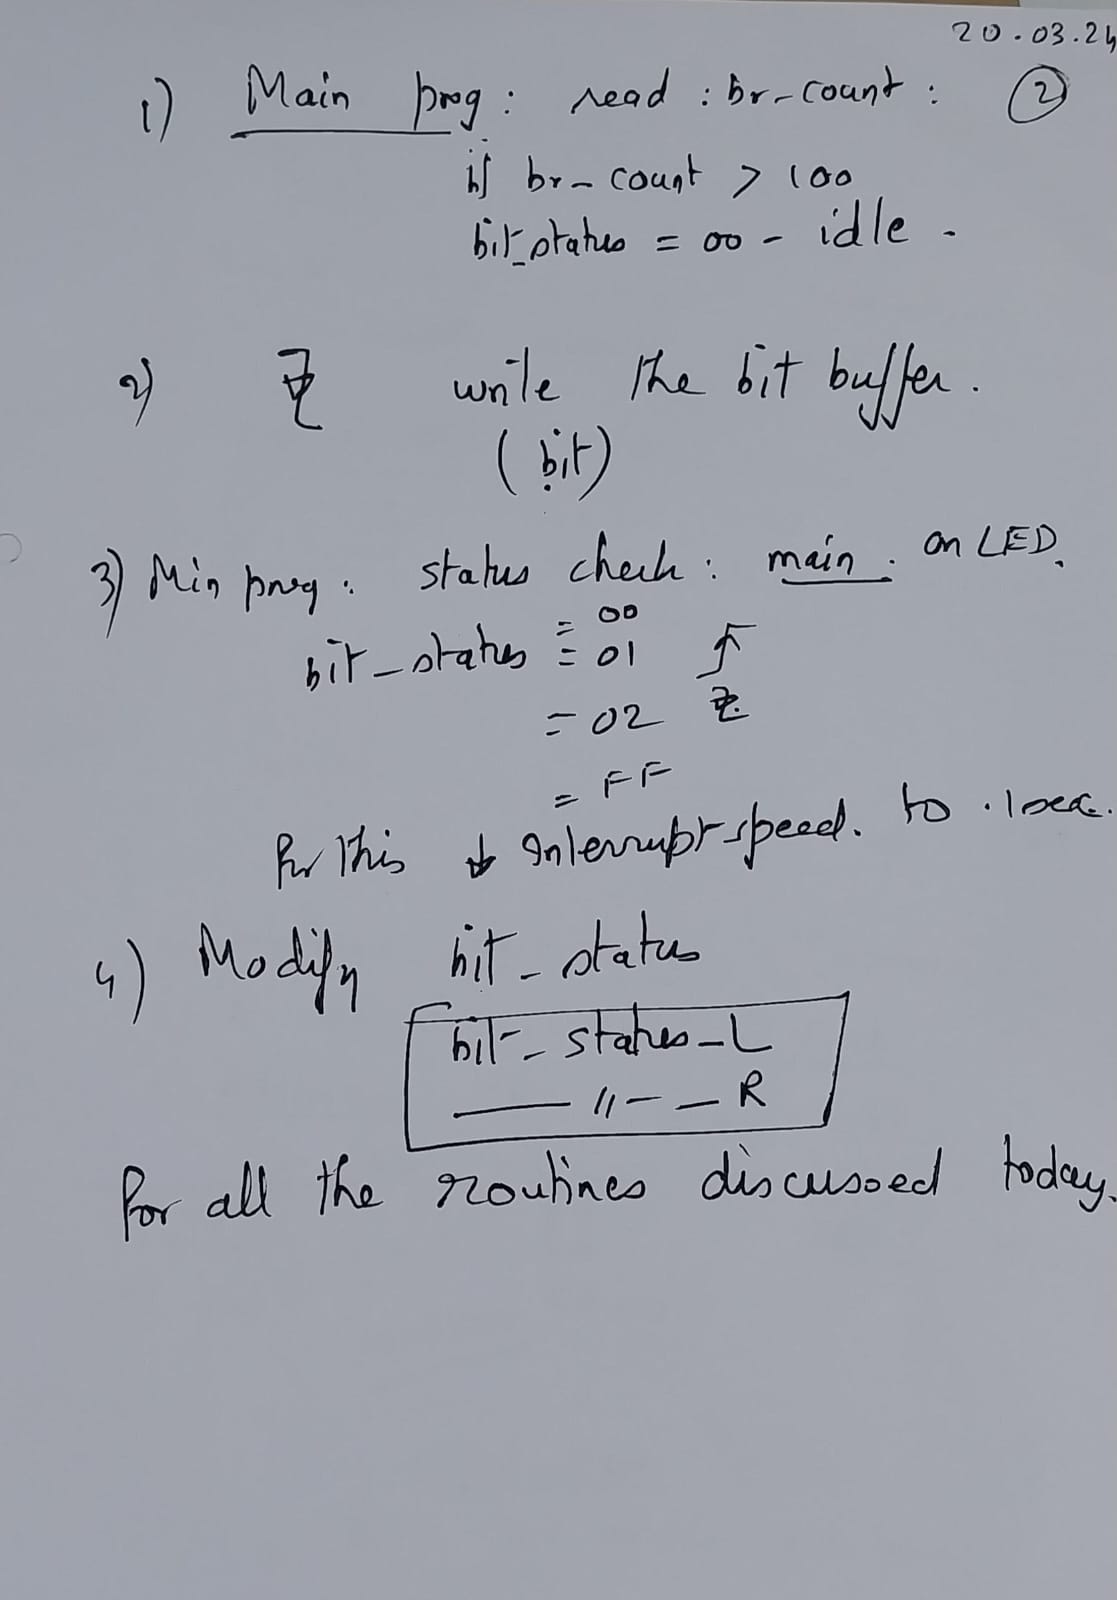 20.03.24
1) Main prog: read: br-count: 2
if br-count > 100
bit_status = 00 - idle.
2) write the bit buffer.
(bit)
3) Min prog: status check: main. on LED.
= 00
bit-status = 01
= 02
= FF
For this Interrupt speed. to .1sec.
4) Modify bit-status
bit-status-L
—〃— - R
For all the routines discussed today.